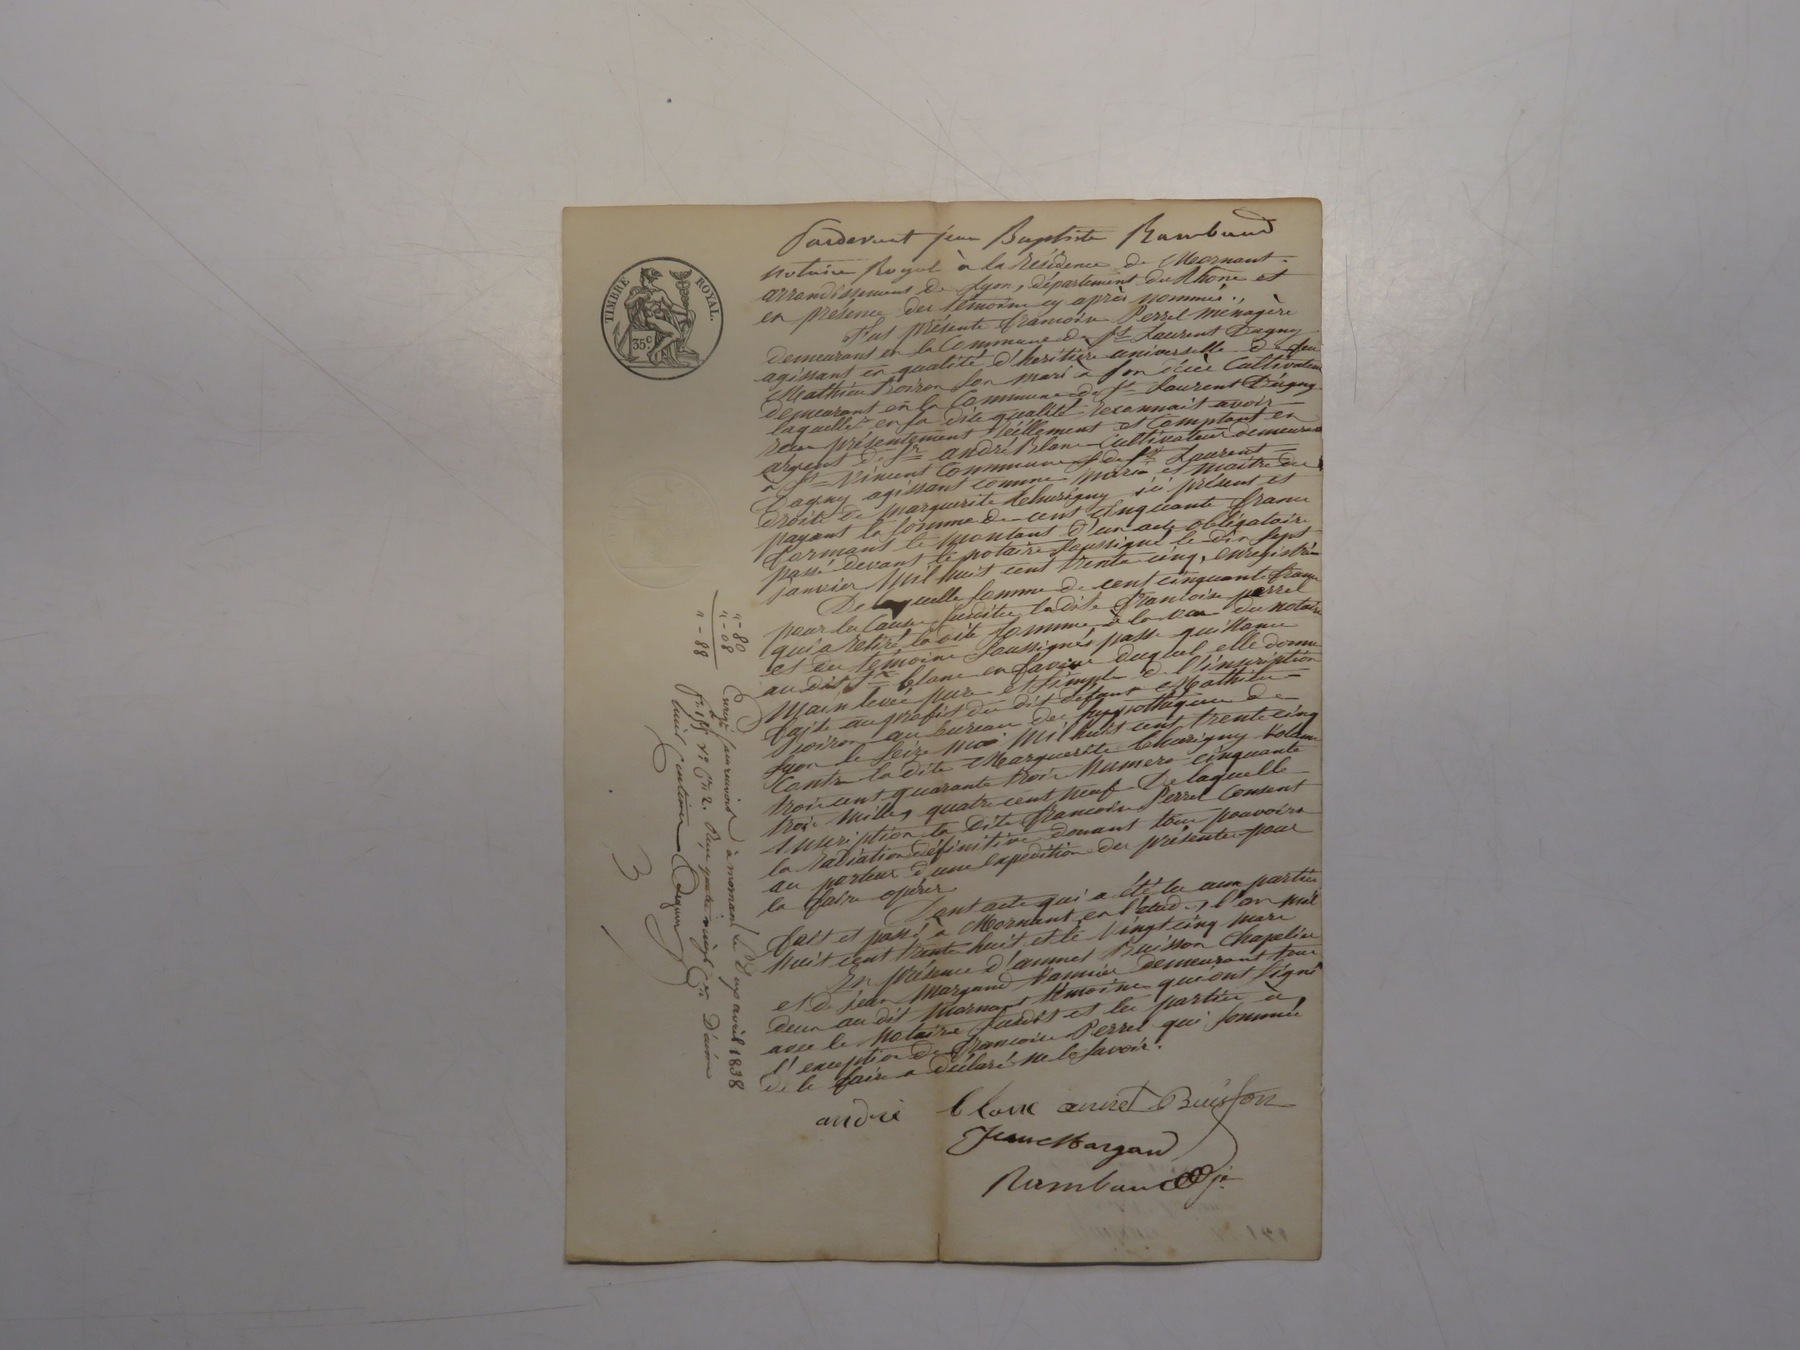 TIMBRE ROYAL.
35c.
Pardevant jean Baptiste Rambaud
notaire Royal à la résidence de Mornant
arrondissement de Lyon, département du Rhône et
en présence des témoins cy après nommés.,
Fut présente françoise Perrel ménagère
demeurant en la Commune de St Laurent Dagny
agissant en qualité d'heritière universelle de feu
Mathieu Poiron son mari à son décès Cultivateur
demeurant en la Commune de St Laurent Dagny
laquelle en sa dite qualité reconnait avoir
reçu présentement réellement et Comptant en
argent de Sr andré Blanc Cultivateur demeurant
à St Vincent Commune de St Laurent
Dagny agissant comme mari et maitre des
droits de marguerite Thurigny ici présent et
payant la somme de cent cinquante francs
formant le montant d'un acte obligatoire
passé devant le notaire soussigné le dix sept
janvier mil huit cent trente cinq, enregistré
De laquelle somme de cent cinquante francs
pour la Cause susdite la dite françoise perrel
qui a retiré la dite somme à la vue du notaire
et des témoins soussignés passe quittance
au dit Sr blanc en faveur duquel elle donne
main levée pure et simple de l'inscription
faite au profit du dit défunt Mathieu
poiron au bureau des hypothèques de
Lyon le seize mai mil huit cent trente cinq
Contre la dite Marguerite Thurigny volume
trois cent quarante trois Numero cinquante
trois mille quatre cent neuf De laquelle
inscription la dite françoise Perrel Consent
la radiation définitive donnant tous pouvoirs
au porteur d'une expédition des présentes pour
la faire opérer
Dont acte qui a été lu aux parties
fait et passé à Mornant en l'étude, l'an mil
huit cent trente huit et le vingt cinq mars
En présence d'annet Buisson Chapelier
et de jean Margand demeurant tous
deux au dit Mornant témoins qui ont signé
avec le Notaire susdit et les parties à
l'exception de françoise Perrel qui sommée
de le faire a déclaré ne le savoir.
andré blanc annet Buisson
Jean Margand
Rambaud
"-80
"-08
"-88
à mornant le avril 1838
quatre vingt Dixième
3